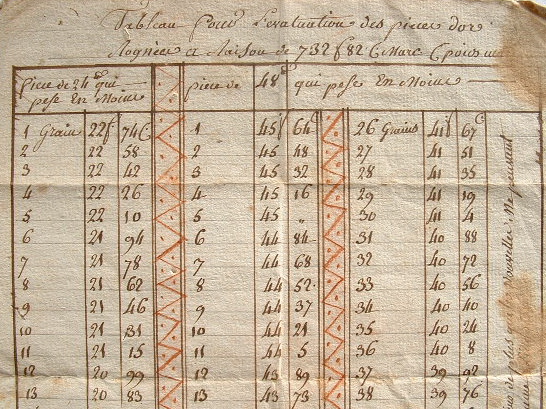 Tableau Pour L'evaluation des pieces d'or
Rognées a Raison de 732 f 82 C Marc (poids
Piece de 24 qui pese En Moins piece de 48 qui pese En Moins
1 Grain 22f 74C 1 45f 64C 26 Grains 41f 67C
2 22 58 2 45 48 27 41 51
3 22 42 3 45 32 28 41 35
4 22 26 4 45 16 29 41 19
5 22 10 5 45 „ 30 41 4
6 21 94 6 44 84 31 40 88
7 21 78 7 44 68 32 40 72
8 21 62 8 44 52 33 40 56
9 21 46 9 44 37 34 40 40
10 21 31 10 44 21 35 40 24
11 21 15 11 44 5 36 40 8
12 20 99 12 43 89 37 39 92
13 20 83 13 43 73 38 39 76